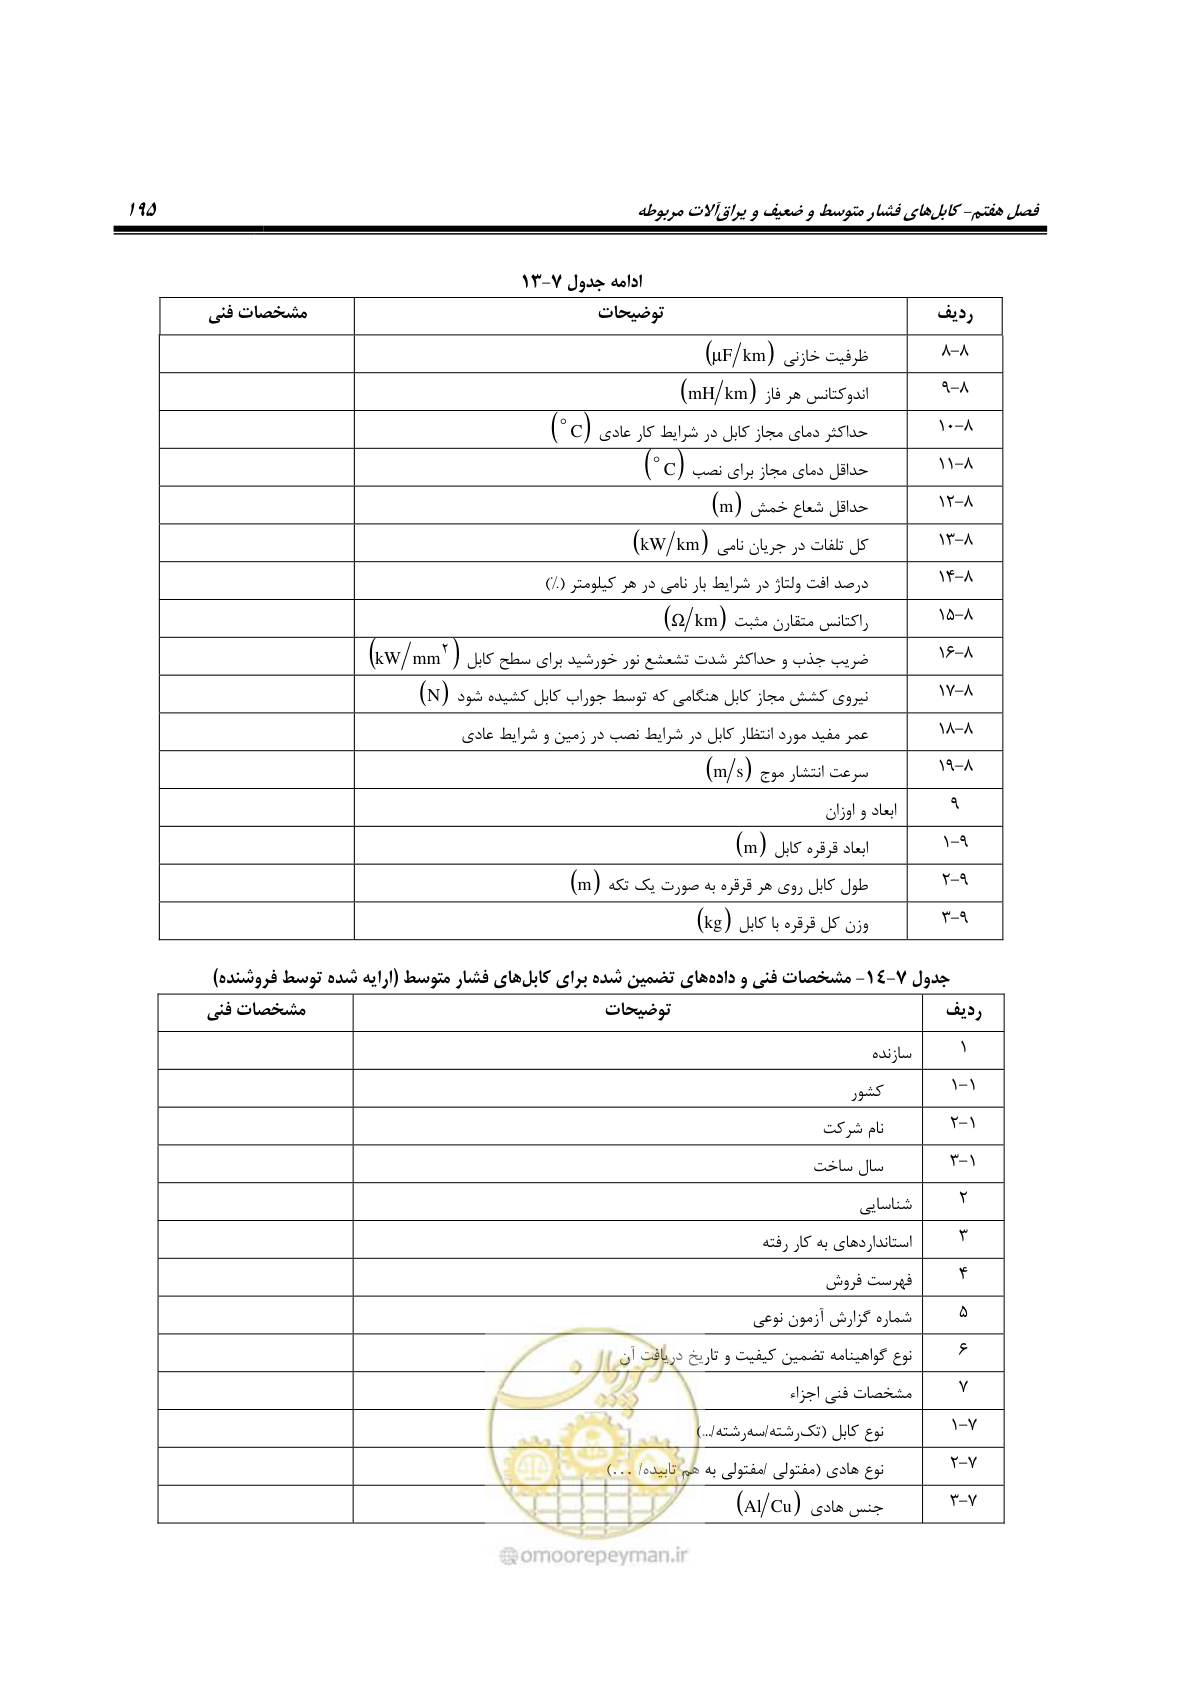 فصل هفتم- کابل‌های فشار متوسط و ضعیف و یراق‌آلات مربوطه ۱۹۵
ادامه جدول ۷-۱۳
ردیف توضیحات مشخصات فنی
۸-۸ ظرفیت خازنی (μF/km)
۸-۹ اندوکتانس هر فاز (mH/km)
۸-۱۰ حداکثر دمای مجاز کابل در شرایط کار عادی (°C)
۸-۱۱ حداقل دمای مجاز برای نصب (°C)
۸-۱۲ حداقل شعاع خمش (m)
۸-۱۳ کل تلفات در جریان نامی (kW/km)
۸-۱۴ درصد افت ولتاژ در شرایط بار نامی در هر کیلومتر (٪)
۸-۱۵ راکتانس متقارن مثبت (Ω/km)
۸-۱۶ ضریب جذب و حداکثر شدت تشعشع نور خورشید برای سطح کابل (kW/mm۲)
۸-۱۷ نیروی کشش مجاز کابل هنگامی که توسط جوراب کابل کشیده شود (N)
۸-۱۸ عمر مفید مورد انتظار کابل در شرایط نصب در زمین و شرایط عادی
۸-۱۹ سرعت انتشار موج (m/s)
۹ ابعاد و اوزان
۹-۱ ابعاد قرقره کابل (m)
۹-۲ طول کابل روی هر قرقره به صورت یک تکه (m)
۹-۳ وزن کل قرقره با کابل (kg)
جدول ۷-۱٤- مشخصات فنی و داده‌های تضمین شده برای کابل‌های فشار متوسط (ارایه شده توسط فروشنده)
ردیف توضیحات مشخصات فنی
۱ سازنده
۱-۱ کشور
۱-۲ نام شرکت
۱-۳ سال ساخت
۲ شناسایی
۳ استانداردهای به کار رفته
۴ فهرست فروش
۵ شماره گزارش آزمون نوعی
۶ نوع گواهینامه تضمین کیفیت و تاریخ دریافت آن
۷ مشخصات فنی اجزاء
۷-۱ نوع کابل (تک‌رشته/سه‌رشته/...)
۷-۲ نوع هادی (مفتولی /مفتولی به هم تابیده/ ...)
۷-۳ جنس هادی (Al/Cu)
امور پیمان
@omoorepeyman.ir